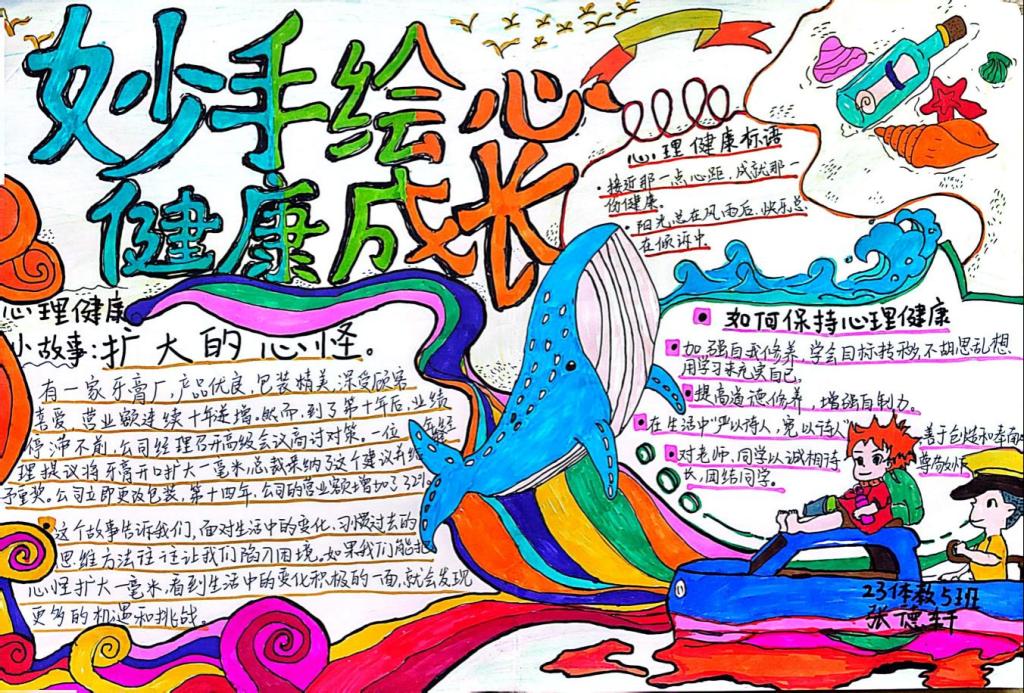 妙手绘心
健康成长
心理健康标语
·接近那一点心距,成就那一
份健康。
·阳光总在风雨后,快乐总
在倾诉中
心理健康
小故事:扩大的心怪。
有一家牙膏厂,产品优良,包装精美,深受顾客
喜爱,营业额连续十年递增,然而,到了第十年后,业绩
停滞不前,公司经理召开高级会议商讨对策。一位
理提议将牙膏开口扩大一毫米,总裁采纳了这个建议并给
予重奖。公司立即更改包装,第十四年,公司的营业额增加了32%。
这个故事告诉我们,面对生活中的变化,习惯过去的
思维方法往往让我们陷入困境,如果我们能把
心怪扩大一毫米,看到生活中的变化积极的一面,就会发现
更多的机遇和挑战。
如何保持心理健康
加强自我修养,学会目标转移,不胡思乱想
用学习来充实自己。
提高道德修养,增强自制力。
在生活中"严以待人,宽以待人"善于创造和幸福
对老师,同学以诚相待 尊敬师
长,团结同学。
23体教5班
张德轩